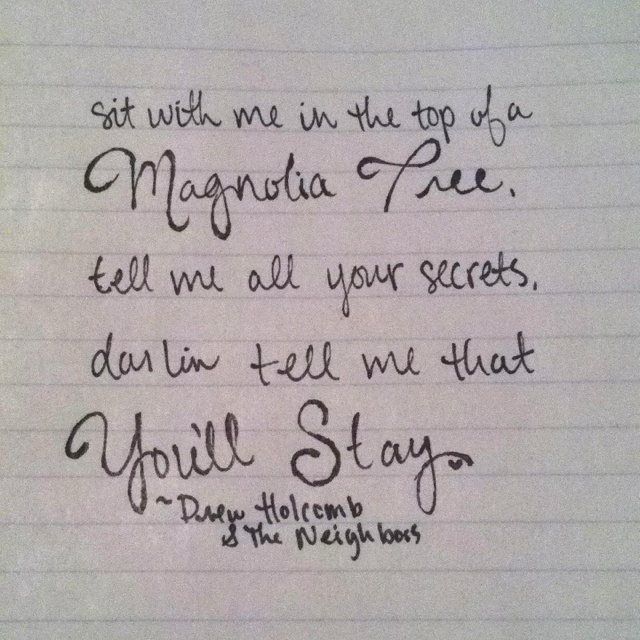 sit with me in the top of a
Magnolia Tree.
tell me all your secrets.
darlin tell me that
You'll Stay
~ Drew Holcomb
& The Neighbors